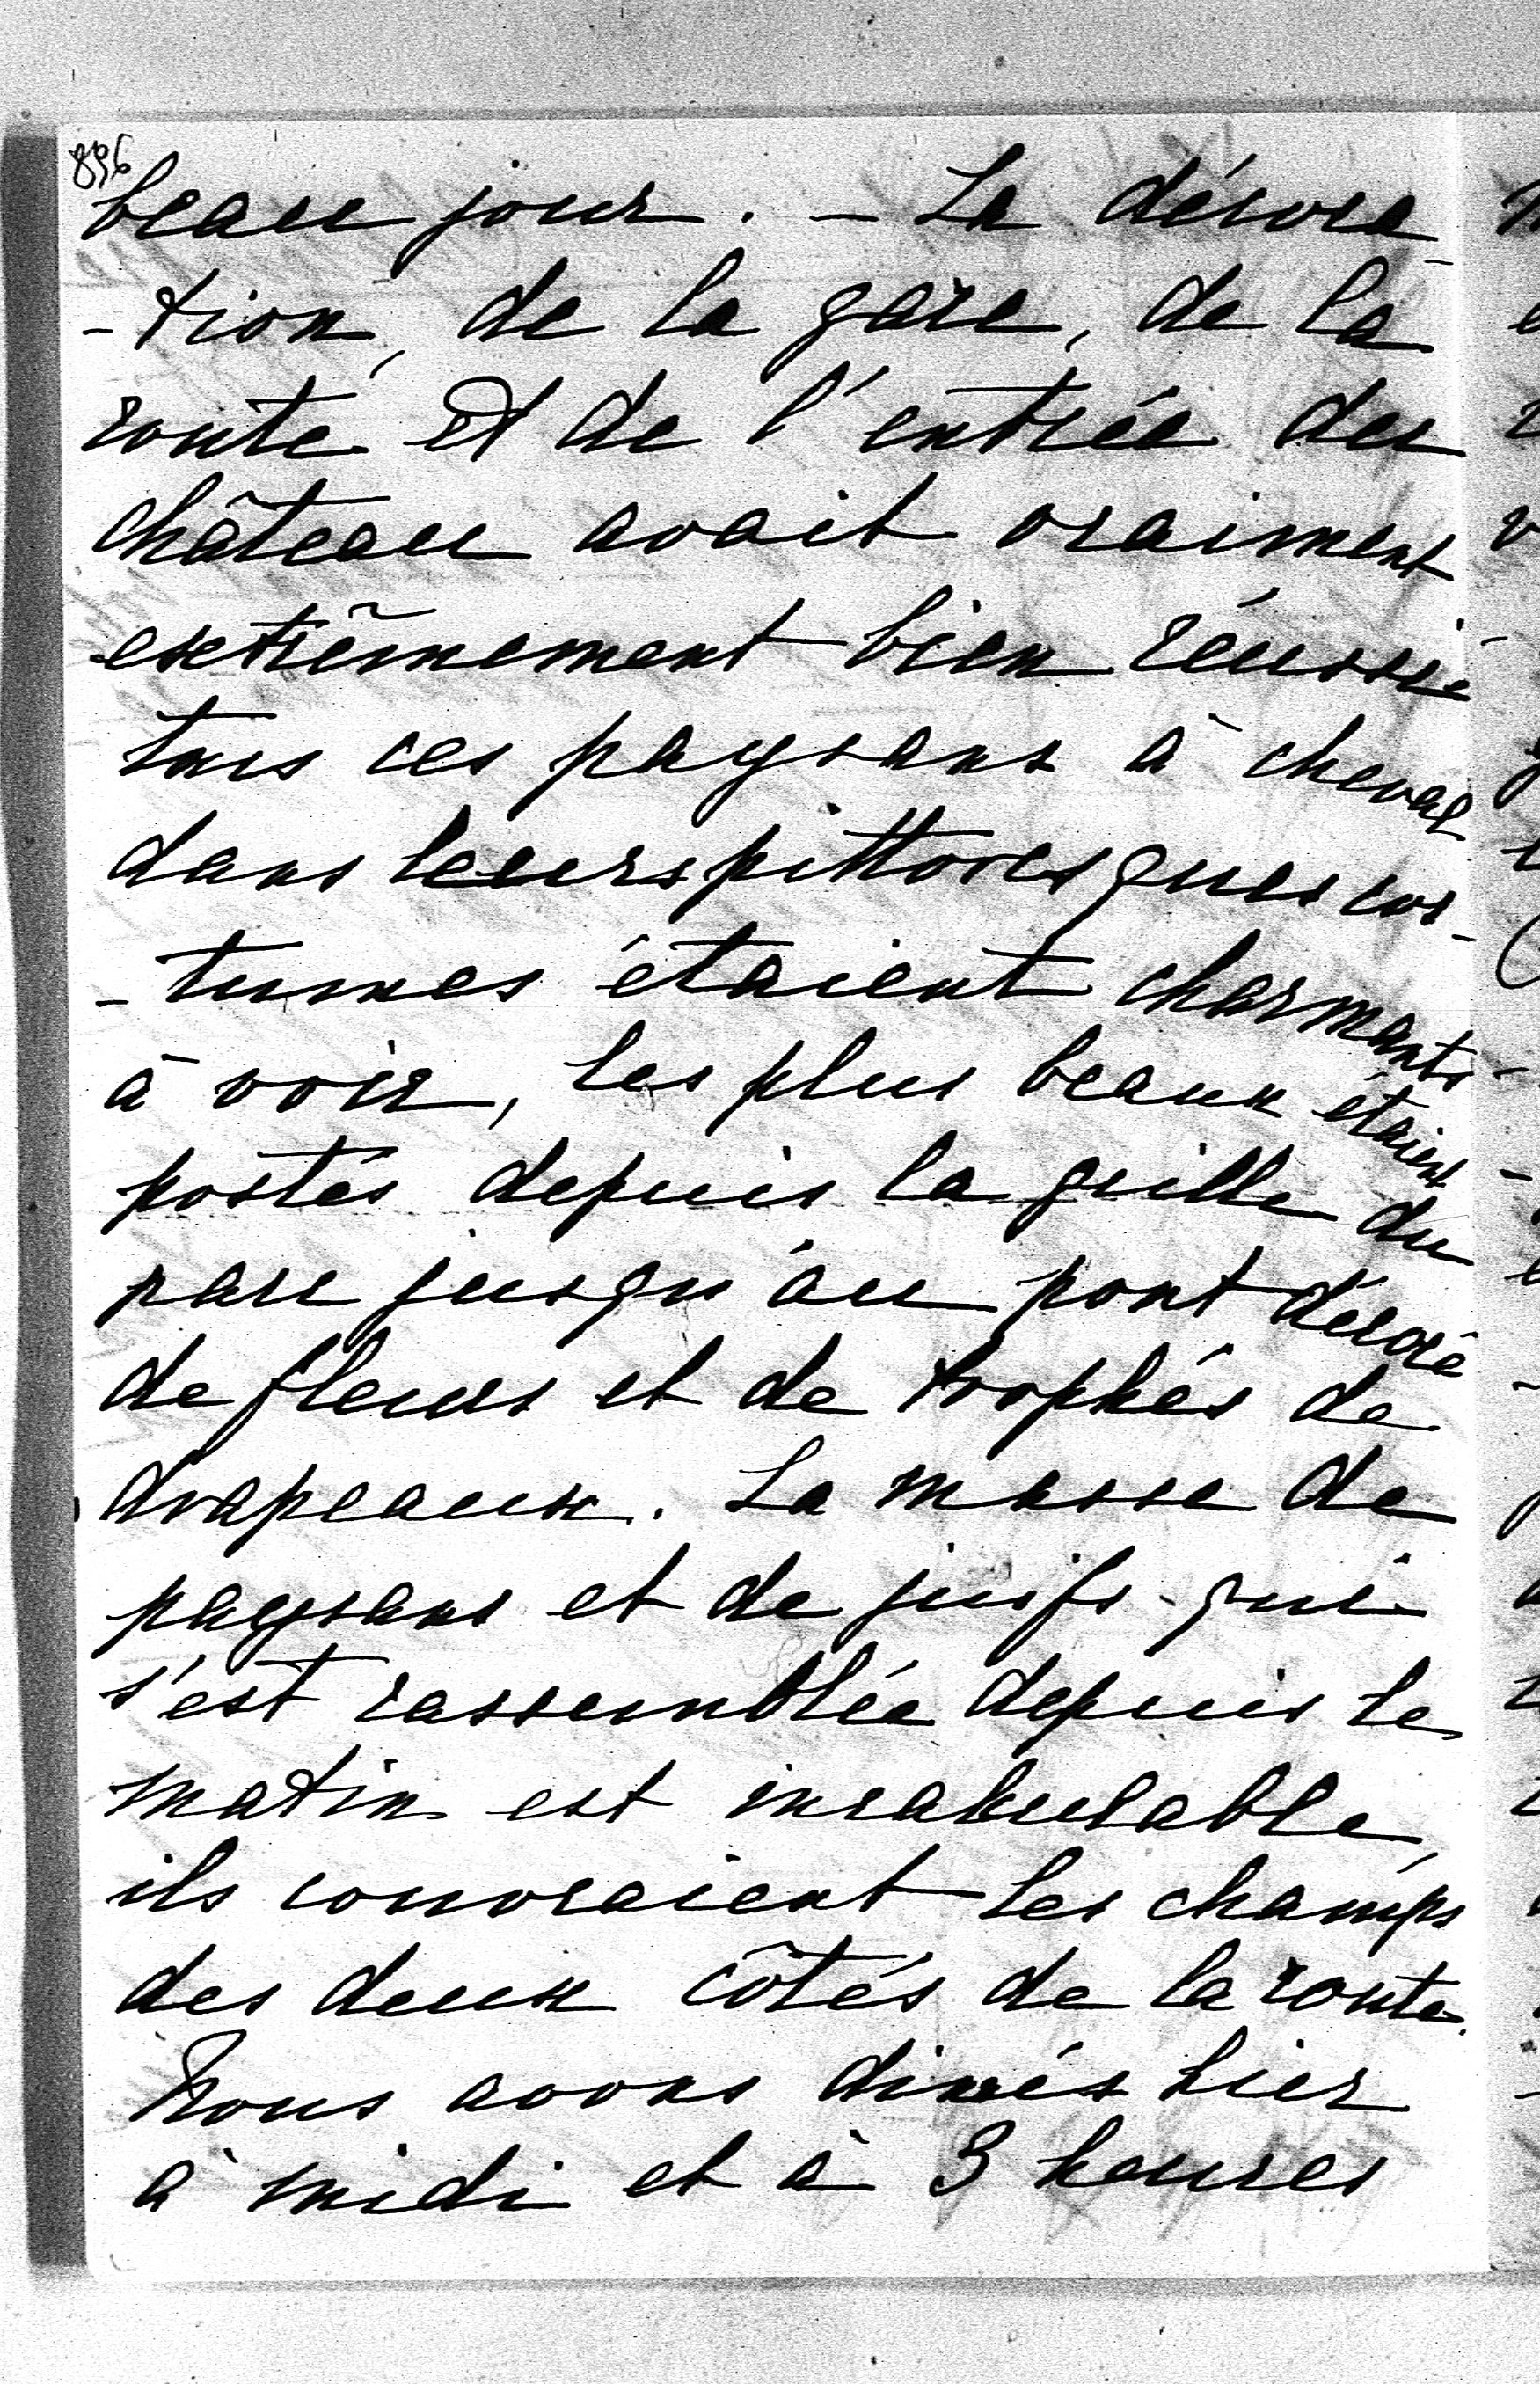 896
beau jour. - La décora-
-tion, de la gare, de la
route et de l'entrée du
château avait vraiment
extrêmement bien réussie
tous ces paysans à cheval
dans leurs pittoresques cos-
-tumes étaient charmants
à voir, les plus beaux étaient
postés depuis la grille du
parc jusqu'au pont décoré
de fleurs et de trophés de
drapeaux. La masse de
paysans et de juifs qui
s'est rassemblée depuis le
matin est incalculable,
ils couvraient les champs
des deux côtés de la route.
Nous avons dinés hier
à midi et à 3 heures